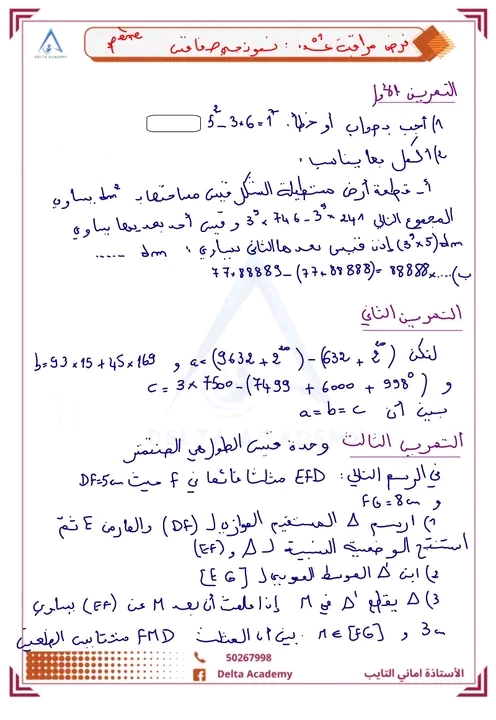 DELTA ACADEMY
فرض مراقبة عدد 1 : نموذجي صفاقس
7ème
التمرين الأول
1) أجب بصواب أو خطأ. 5² - 3×6 = 1²
2) أكمل بما يناسب.
أ- قطعة أرض مستطيلة الشكل قيس مساحتها بـ dm² يساوي
المجموع التالي 3⁹ × 746 - 3⁹ × 241 و قيس أحد بعديها يساوي
(3⁹×5) dm إذن قيس بعدها الثاني يساوي : ...... dm
ب) 77×88889 - (77×88888) = 88888×....
التمرين الثاني
لتكن a = (9632 + 2²⁰) - (632 + 2²⁰) و b = 93×15 + 45×169
و c = 3×7500 - (7499 + 6000 + 998⁰)
بين أن a = b = c
التمرين الثالث وحدة قيس الطول هي الصنتمتر
في الرسم التالي: EFD مثلثا قائما في F حيث DF=5cm
و FG = 8cm
1) ارسم Δ المستقيم الموازي لـ (DF) والمار من E ثم
استنتج الوضعية النسبية لـ Δ و (EF)
2) ابن Δ' الموسط العمودي لـ [EG]
3) Δ يقطع Δ' في M إذا علمت أن بعد M عن (EF) يساوي
3cm و M∈[FG] بين أن المثلث FMD متقايس الضلعين
50267998
Delta Academy
الأستاذة اماني التايب